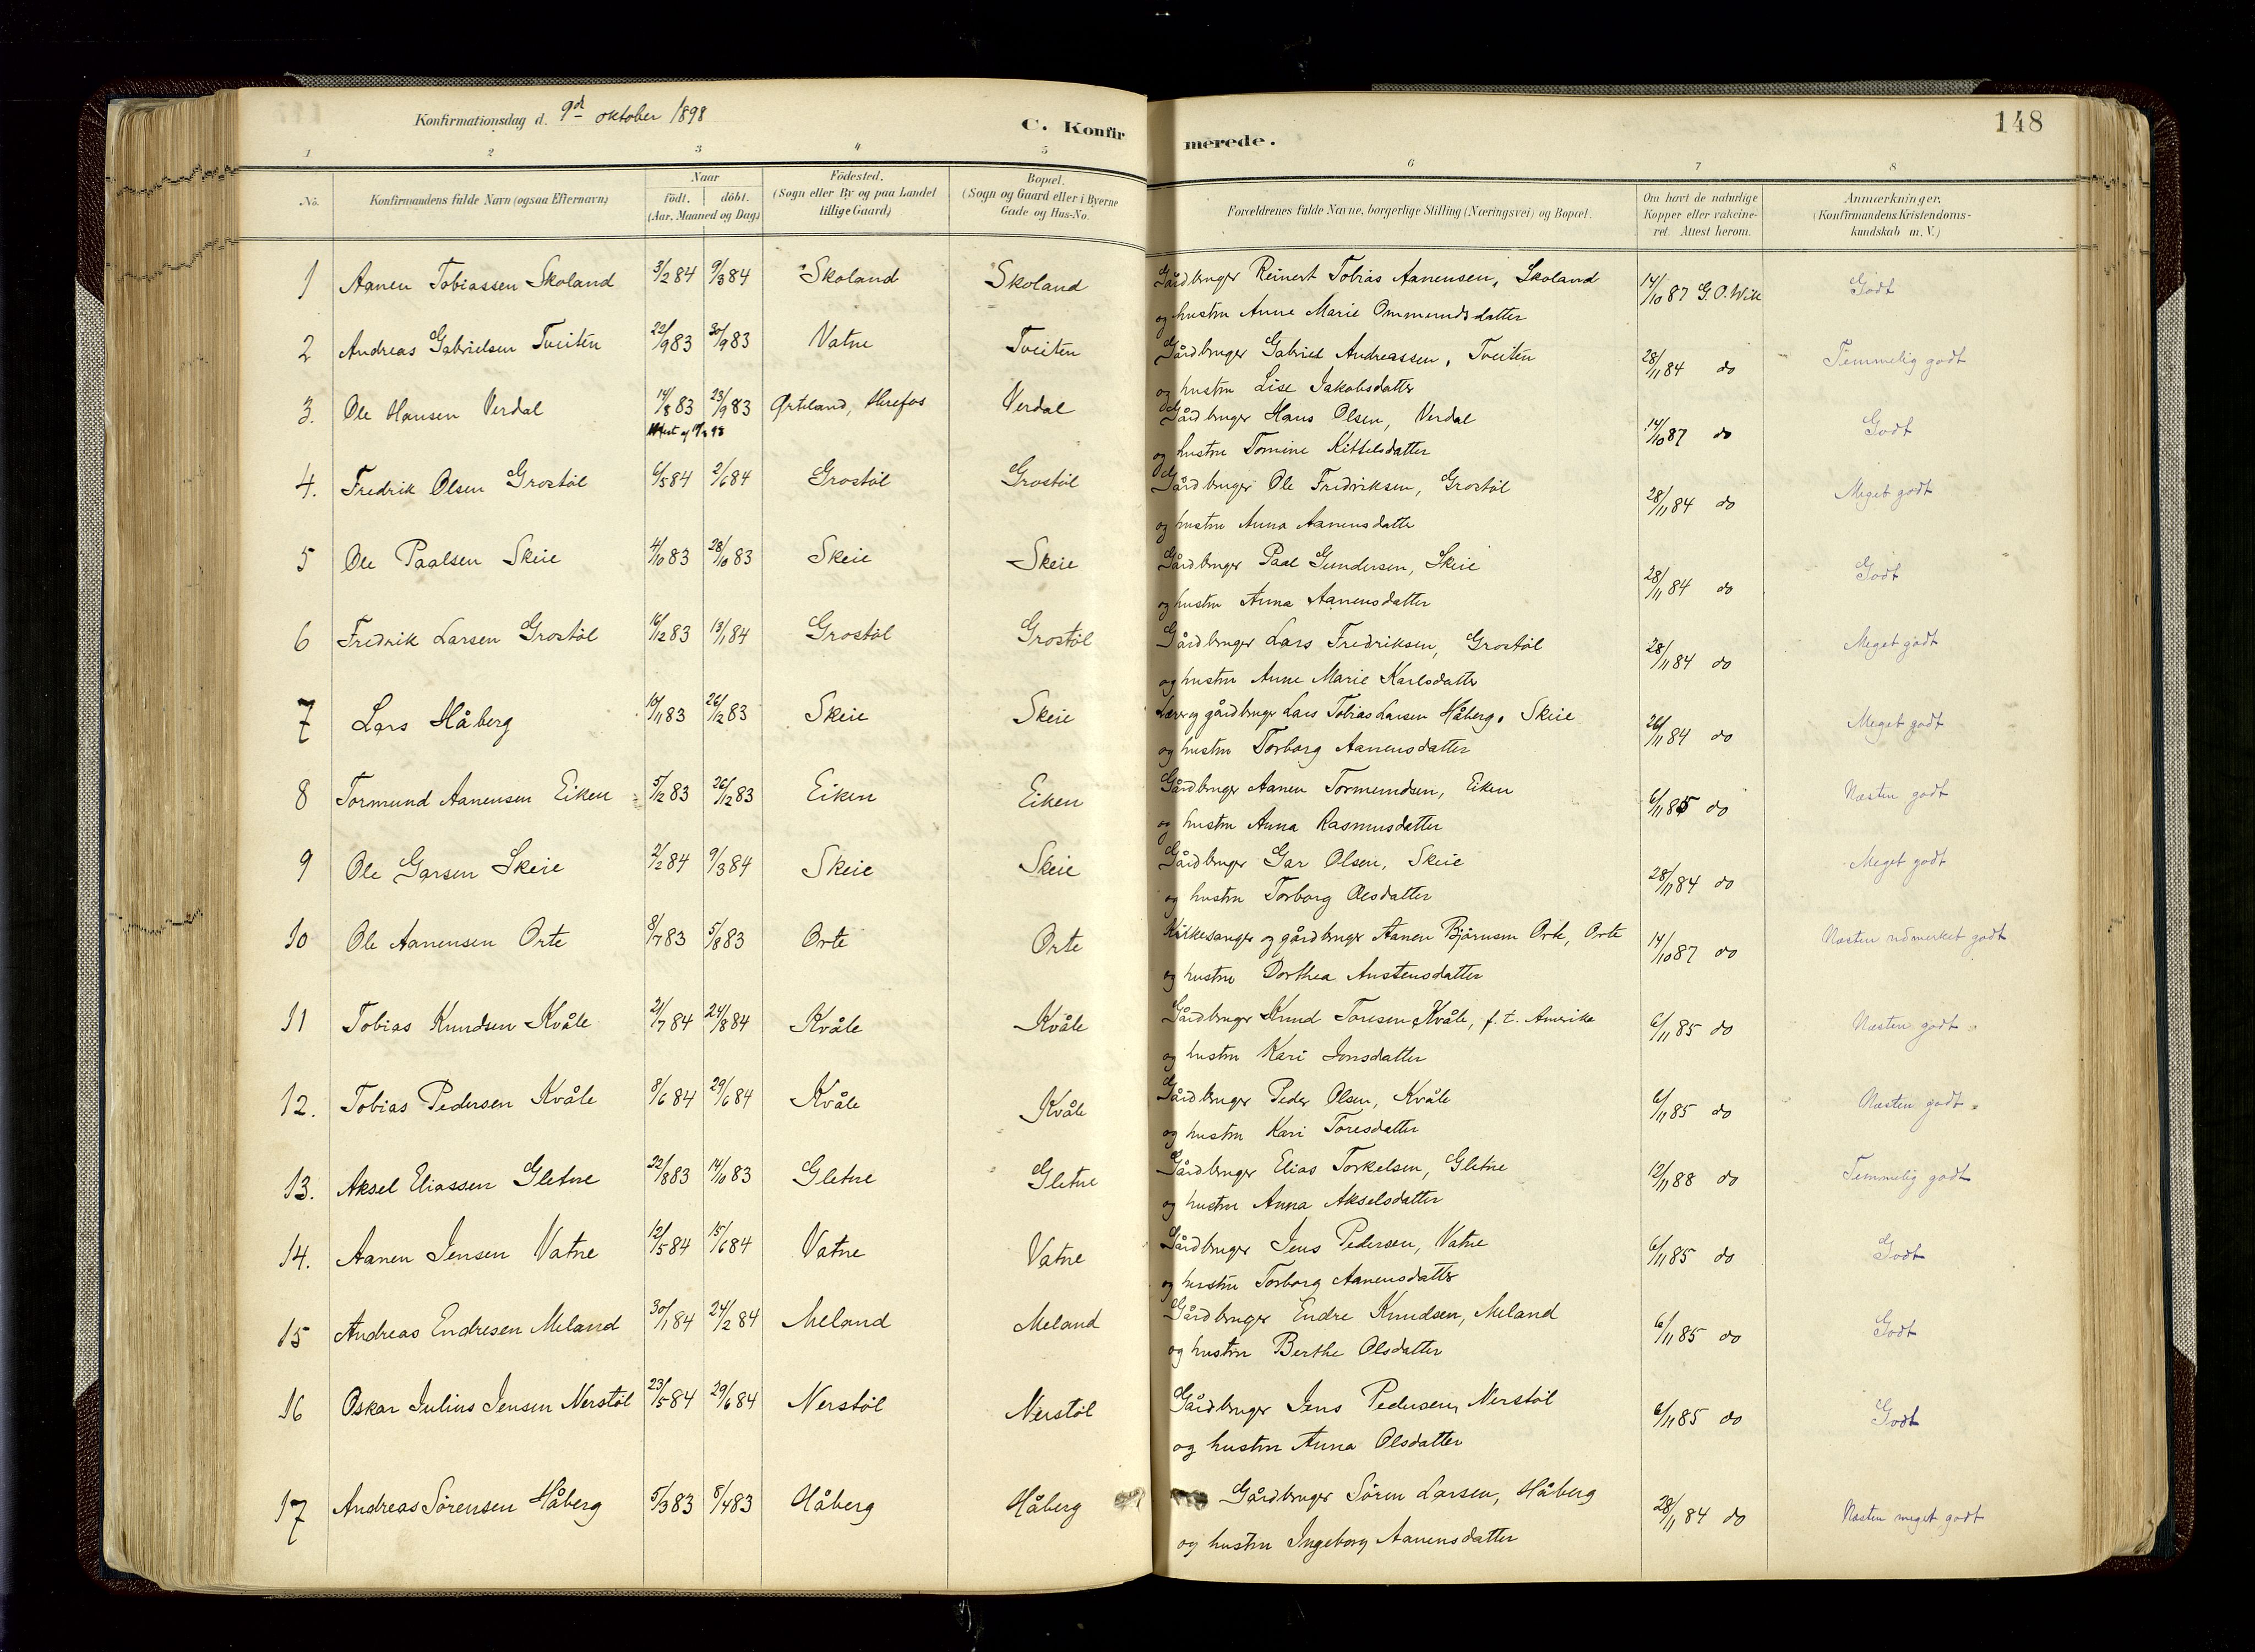 Konfirmationsdag d. 9de oktober 1898
C. Konfirmerede.
148
1 2 3 4 5 6 7 8
No. Konfirmandens fulde Navn (ogsaa Efternavn) Naar födt. döbt. (Aar, Maaned og Dag) Födested. (Sogn eller By og paa Landet tillige Gaard) Bopæl. (Sogn og Gaard eller i Byerne Gade og Hus-No. Forældrenes fulde Navne, borgerlige Stilling (Næringsvei) og Bopæl. Om havt de naturlige Kopper eller vakcineret. Attest herom. Anmærkninger. (Konfirmandens Kristendomskundskab m. V.)
1 Aanen Tobiassen Skoland 3/2 84 9/3 84 Skoland Skoland Gårdbruger Reinert Tobias Aanensen, Skoland 14/10 87 G. O. Wiik Godt
og hustru Anne Marie Ommundsdatter
2 Andreas Gabrielsen Tveiten 22/9 83 30/9 83 Vatne Tveiten Gårdbruger Gabriel Andreassen, Tveiten 28/11 84 do Temmelig godt
og hustru Lise Jakobsdatter
3. Ole Hansen Verdal 14/8 83 23/9 83 Ørteland, Herefos Verdal Gårdbruger Hans Olsen, Verdal 14/10 87 do Godt
og hustru Tomine Kittelsdatter
4. Fredrik Olsen Grostöl 6/5 84 2/6 84 Grostöl Grostöl Gårdbruger Ole Fredriksen, Grostöl 28/11 84 do Meget godt
og hustru Anna Aanensdatter
5 Ole Paalsen Skeie 4/10 83 28/10 83 Skeie Skeie Gårdbruger Paal Gundersen, Skeie 28/11 84 do Godt
og hustru Anna Aanensdatter
6 Fredrik Larsen Grostöl 16/12 83 13/1 84 Grostöl Grostöl Gårdbruger Lars Fredriksen, Grostöl 28/11 84 do Meget godt
og hustru Anne Marie Karlsdatter
7 Lars Håberg 18/11 83 26/12 83 Skeie Skeie Lærer og gårdbruger Lars Tobias Larsen Håberg, Skeie 26/11 84 do Meget godt
og hustru Torborg Aanensdatter
8 Tormund Aanensen Eiken 5/12 83 26/12 83 Eiken Eiken Gårdbruger Aanen Tormundsen, Eiken 6/11 85 do Næsten godt
og hustru Anna Rasmusdatter
9 Ole Garsen Skeie 2/2 84 9/3 84 Skeie Skeie Gårdbruger Gar Olsen, Skeie 28/11 84 do Meget godt
og hustru Torborg Olsdatter
10 Ole Aanensen Orte 8/7 83 5/8 83 Orte Orte Kirkesanger og gårdbruger Aanen Björnsen Orte, Orte 14/10 87 do Næsten udmerket godt
og hustru Dorthea Anstensdatter
11 Tobias Knudsen Kvåle 21/7 84 24/8 84 Kvåle Kvåle Gårdbruger Knud Toresen Kvåle, f. t. Amerika 6/11 85 do Næsten godt
og hustru Kari Jonsdatter
12. Tobias Pedersen Kvåle 8/6 84 29/6 84 Kvåle Kvåle Gårdbruger Peder Olsen, Kvåle 6/11 85 do Næsten godt
og hustru Kari Toresdatter
13. Aksel Eliassen Gletne 22/8 83 14/10 83 Gletne Gletne Gårdbruger Elias Torkelsen, Gletne 12/11 88 do Temmelig godt
og hustru Anna Akselsdatter
14. Aanen Jensen Vatne 12/5 84 15/6 84 Vatne Vatne Gårdbruger Jens Pedersen, Vatne 6/11 85 do Godt
og hustru Torborg Aanensdatter
15 Andreas Endresen Meland 30/1 84 24/2 84 Meland Meland Gårdbruger Endre Knudsen, Meland 6/11 85 do Godt
og hustru Berthe Olsdatter
16 Oskar Julius Jensen Nerstöl 23/5 84 29/6 84 Nerstöl Nerstöl Gårdbruger Jens Pedersen, Nerstöl 6/11 85 do Godt
og hustru Anna Olsdatter
17 Andreas Sörensen Håberg 5/3 83 8/4 83 Håberg Håberg Gårdbruger Sören Larsen, Håberg 28/11 84 do Næsten meget godt
og hustru Ingeborg Aanensdatter